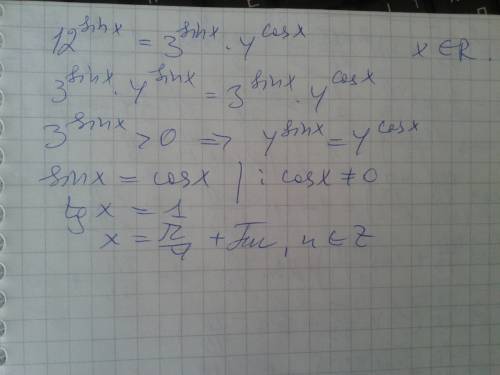 12^sinx = 3^sinx · 4^cosx x ∈ R.
3^sinx · 4^sinx = 3^sinx · 4^cosx
3^sinx > 0 ⇒ 4^sinx = 4^cosx
sinx = cosx | : cosx ≠ 0
tg x = 1
x = π/4 + πn, n ∈ Z